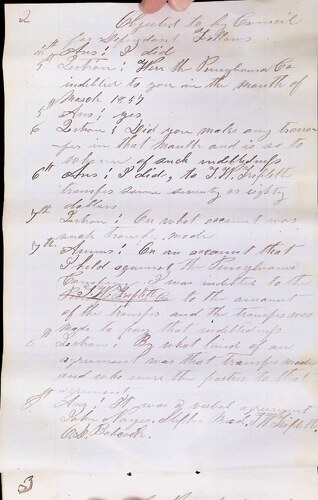 2
Objected to by Council
for Defendant Fellows
4th Ans! I did
5th Question! Were the Pennsylvania Co
indebted to you in the month of
March 1857
5th Ans! yes
6 Question! Did you make any trans-
fer in that month and if so to
whom of such indebtedness
6th Ans! I did, to T. W.
transfer some seventy or eighty
dollars
7th Question! On what account was
such transfer made
7th Answer! On an account that
I held against the Pennsylvania
Company. I was indebted to the
T. W. to the amount
of the transfer and the transfer was
made to pay that indebtedness
8th Question! By what kind of an
agreement was that transfer made
and who were the parties to that
agreement
8th Ans! It was a verbal agreement
John T. W.
Babcock.
3